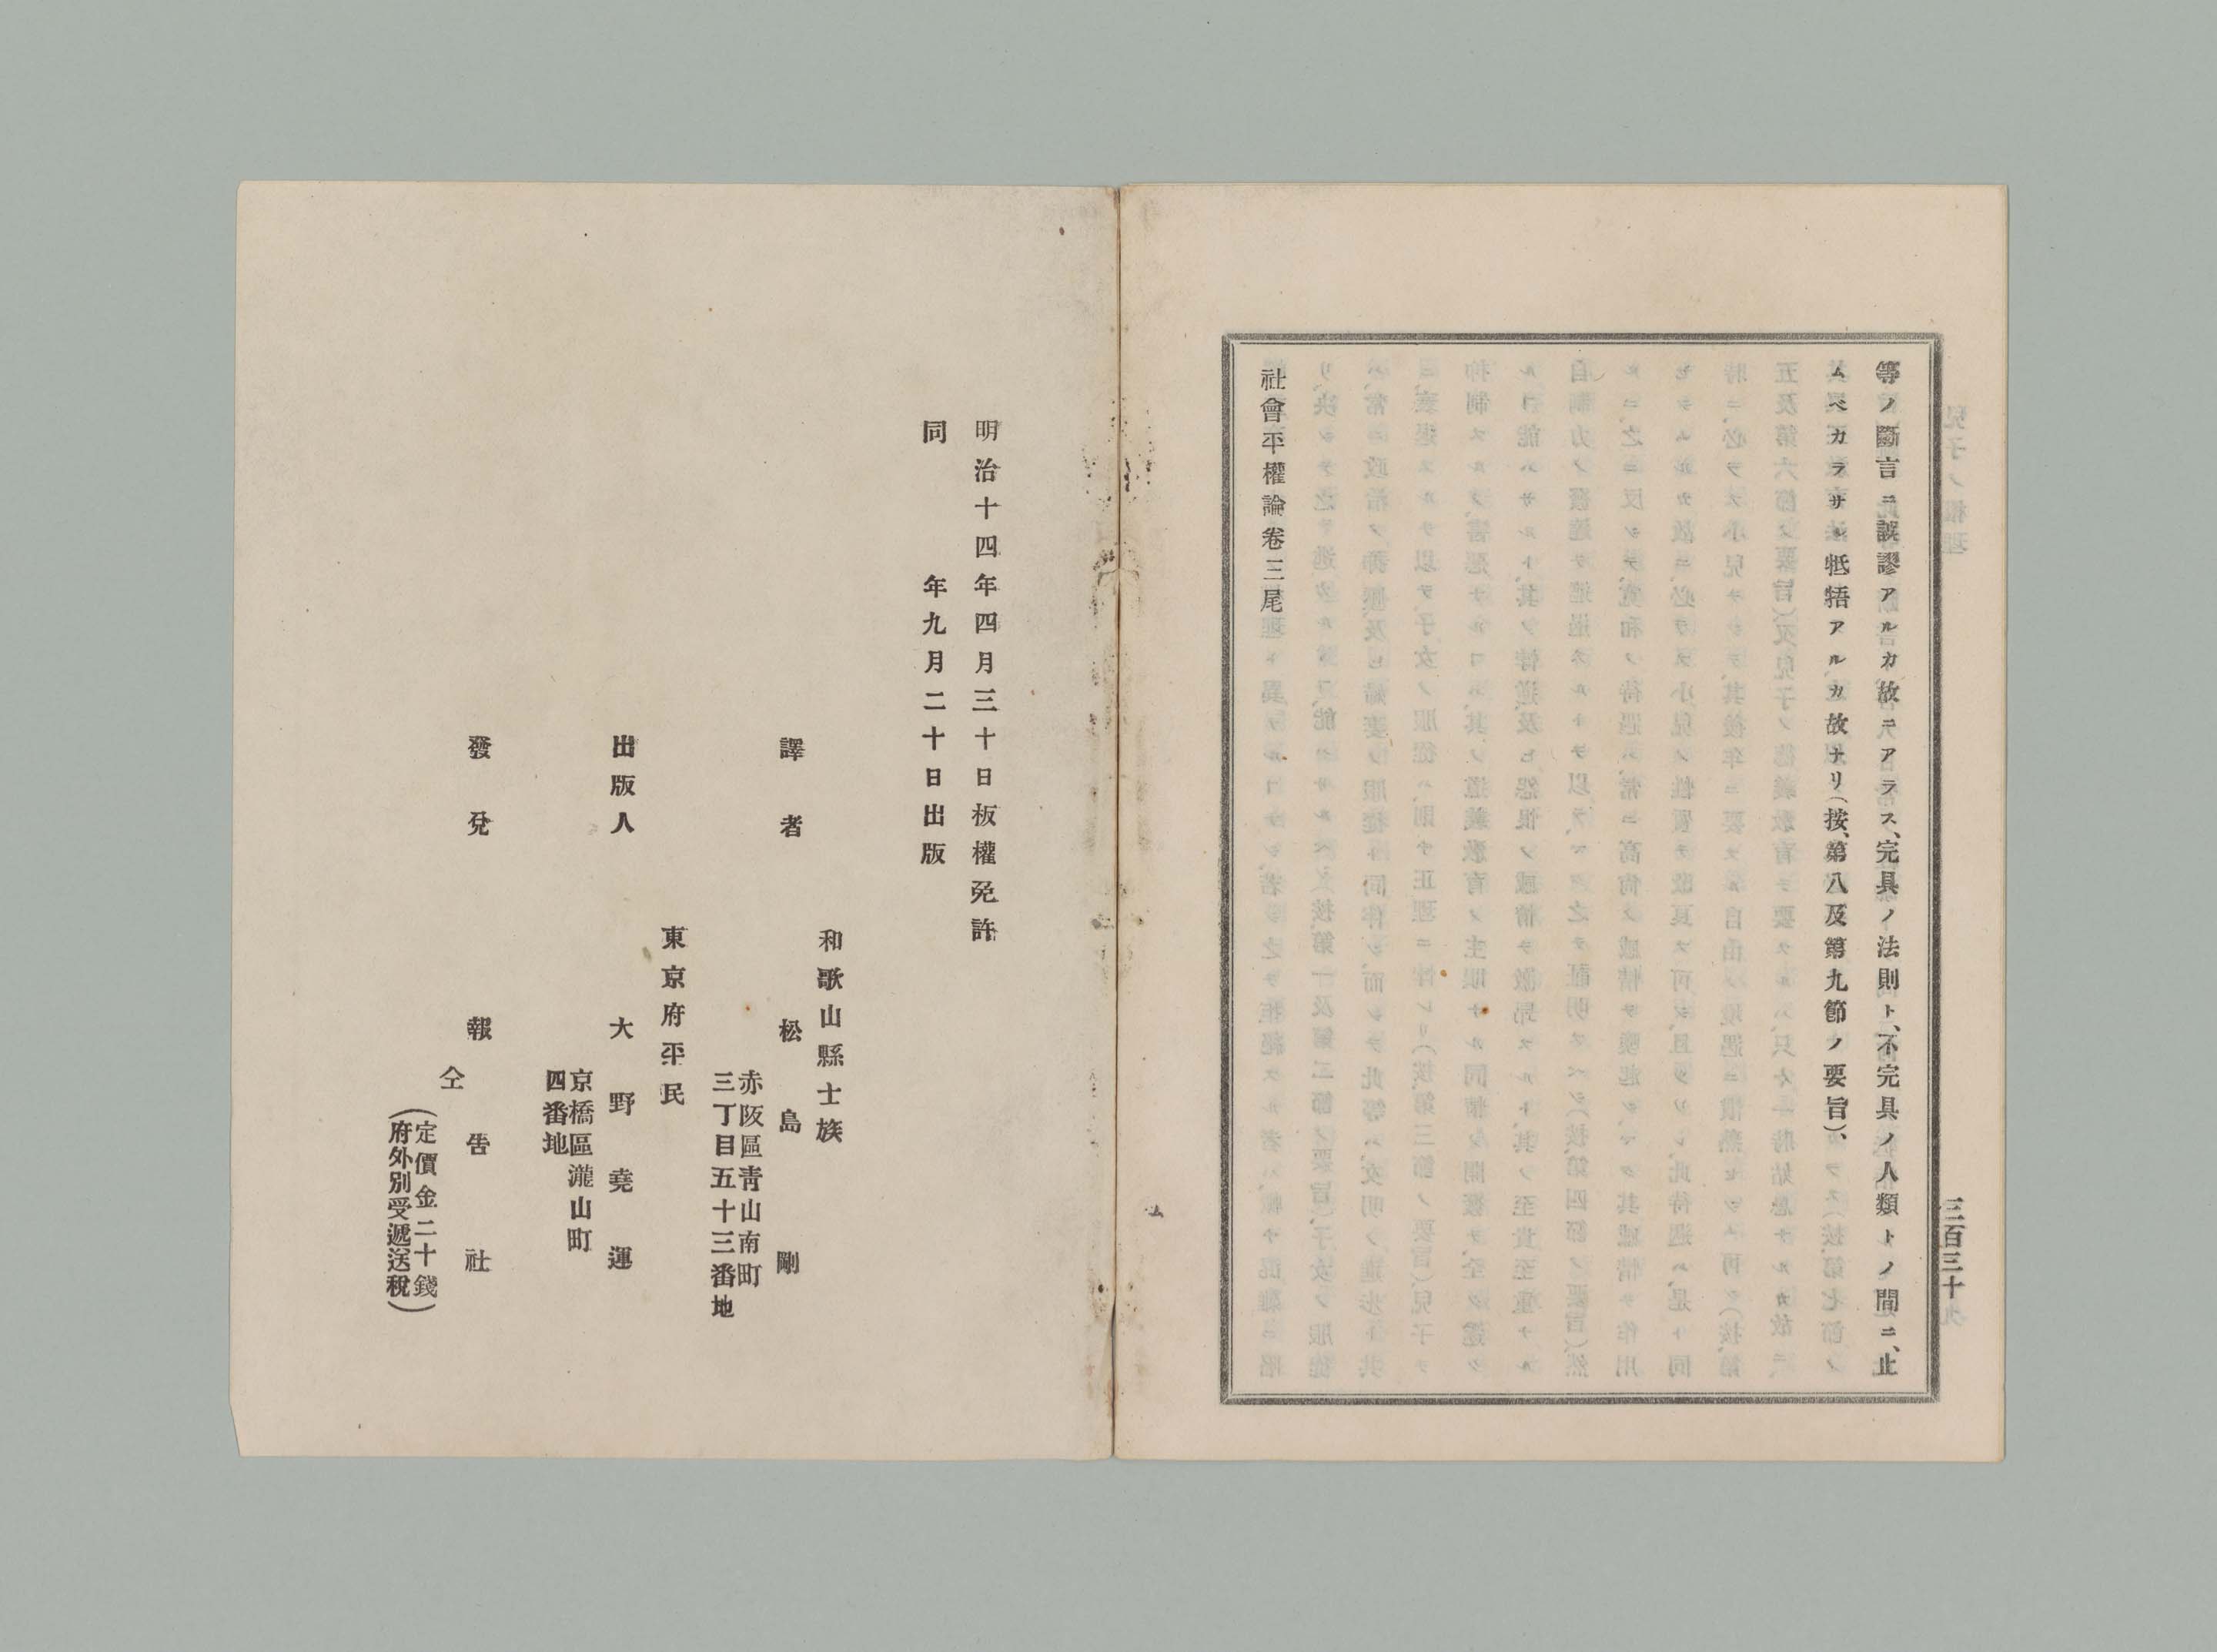 等ノ斷言ニ誤謬アルカ故ニアラス、完具ノ法則ト、不完具ノ人類トノ間ニ、止
ムヘカラサル牴牾アルカ故ナリ（按、第八及第九節ノ要旨）、
社會平權論卷三尾
三百三十
明治十四年四月三十日板權免許
同年九月二十日出版
和歌山縣士族
譯者 松島剛
赤阪區青山南町
三丁目五十三番地
東京府平民
出版人 大野堯運
京橋區瀧山町
四番地
發兌 報告社
仝
（定價金二十錢
府外別受遞送稅）